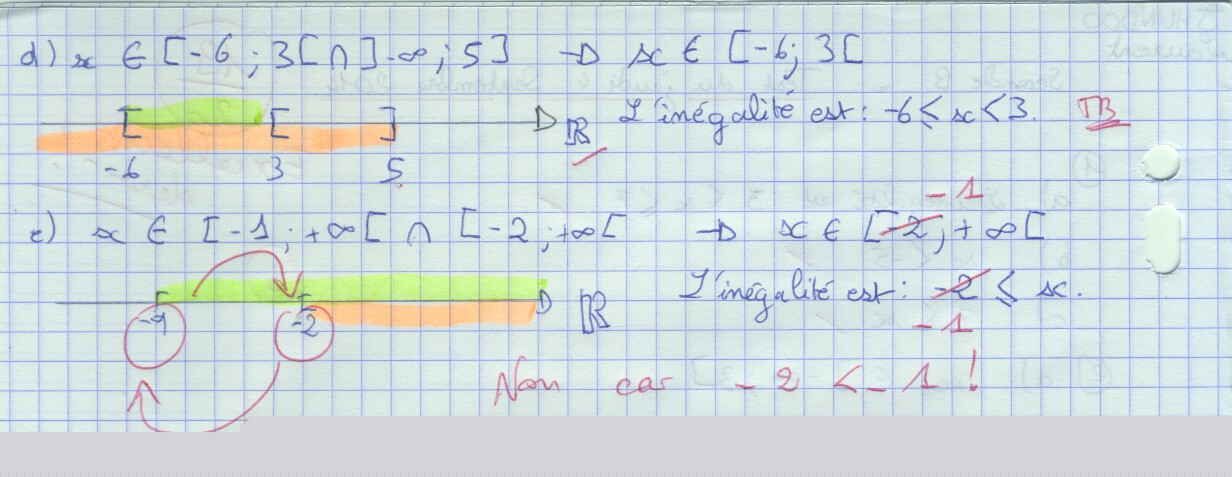 d) x ∈ [-6 ; 3[ ∩ ]-∞ ; 5] → x ∈ [-6 ; 3[
[ [ ] ℝ L'inégalité est : -6 ≤ x < 3. TB
-6 3 5
-1
e) x ∈ [-1 ; +∞[ ∩ [-2 ; +∞[ → x ∈ [-2 ; +∞[
[ [ ℝ L'inégalité est : -2 ≤ x.
-1 -2 -1
Non car -2 < -1 !